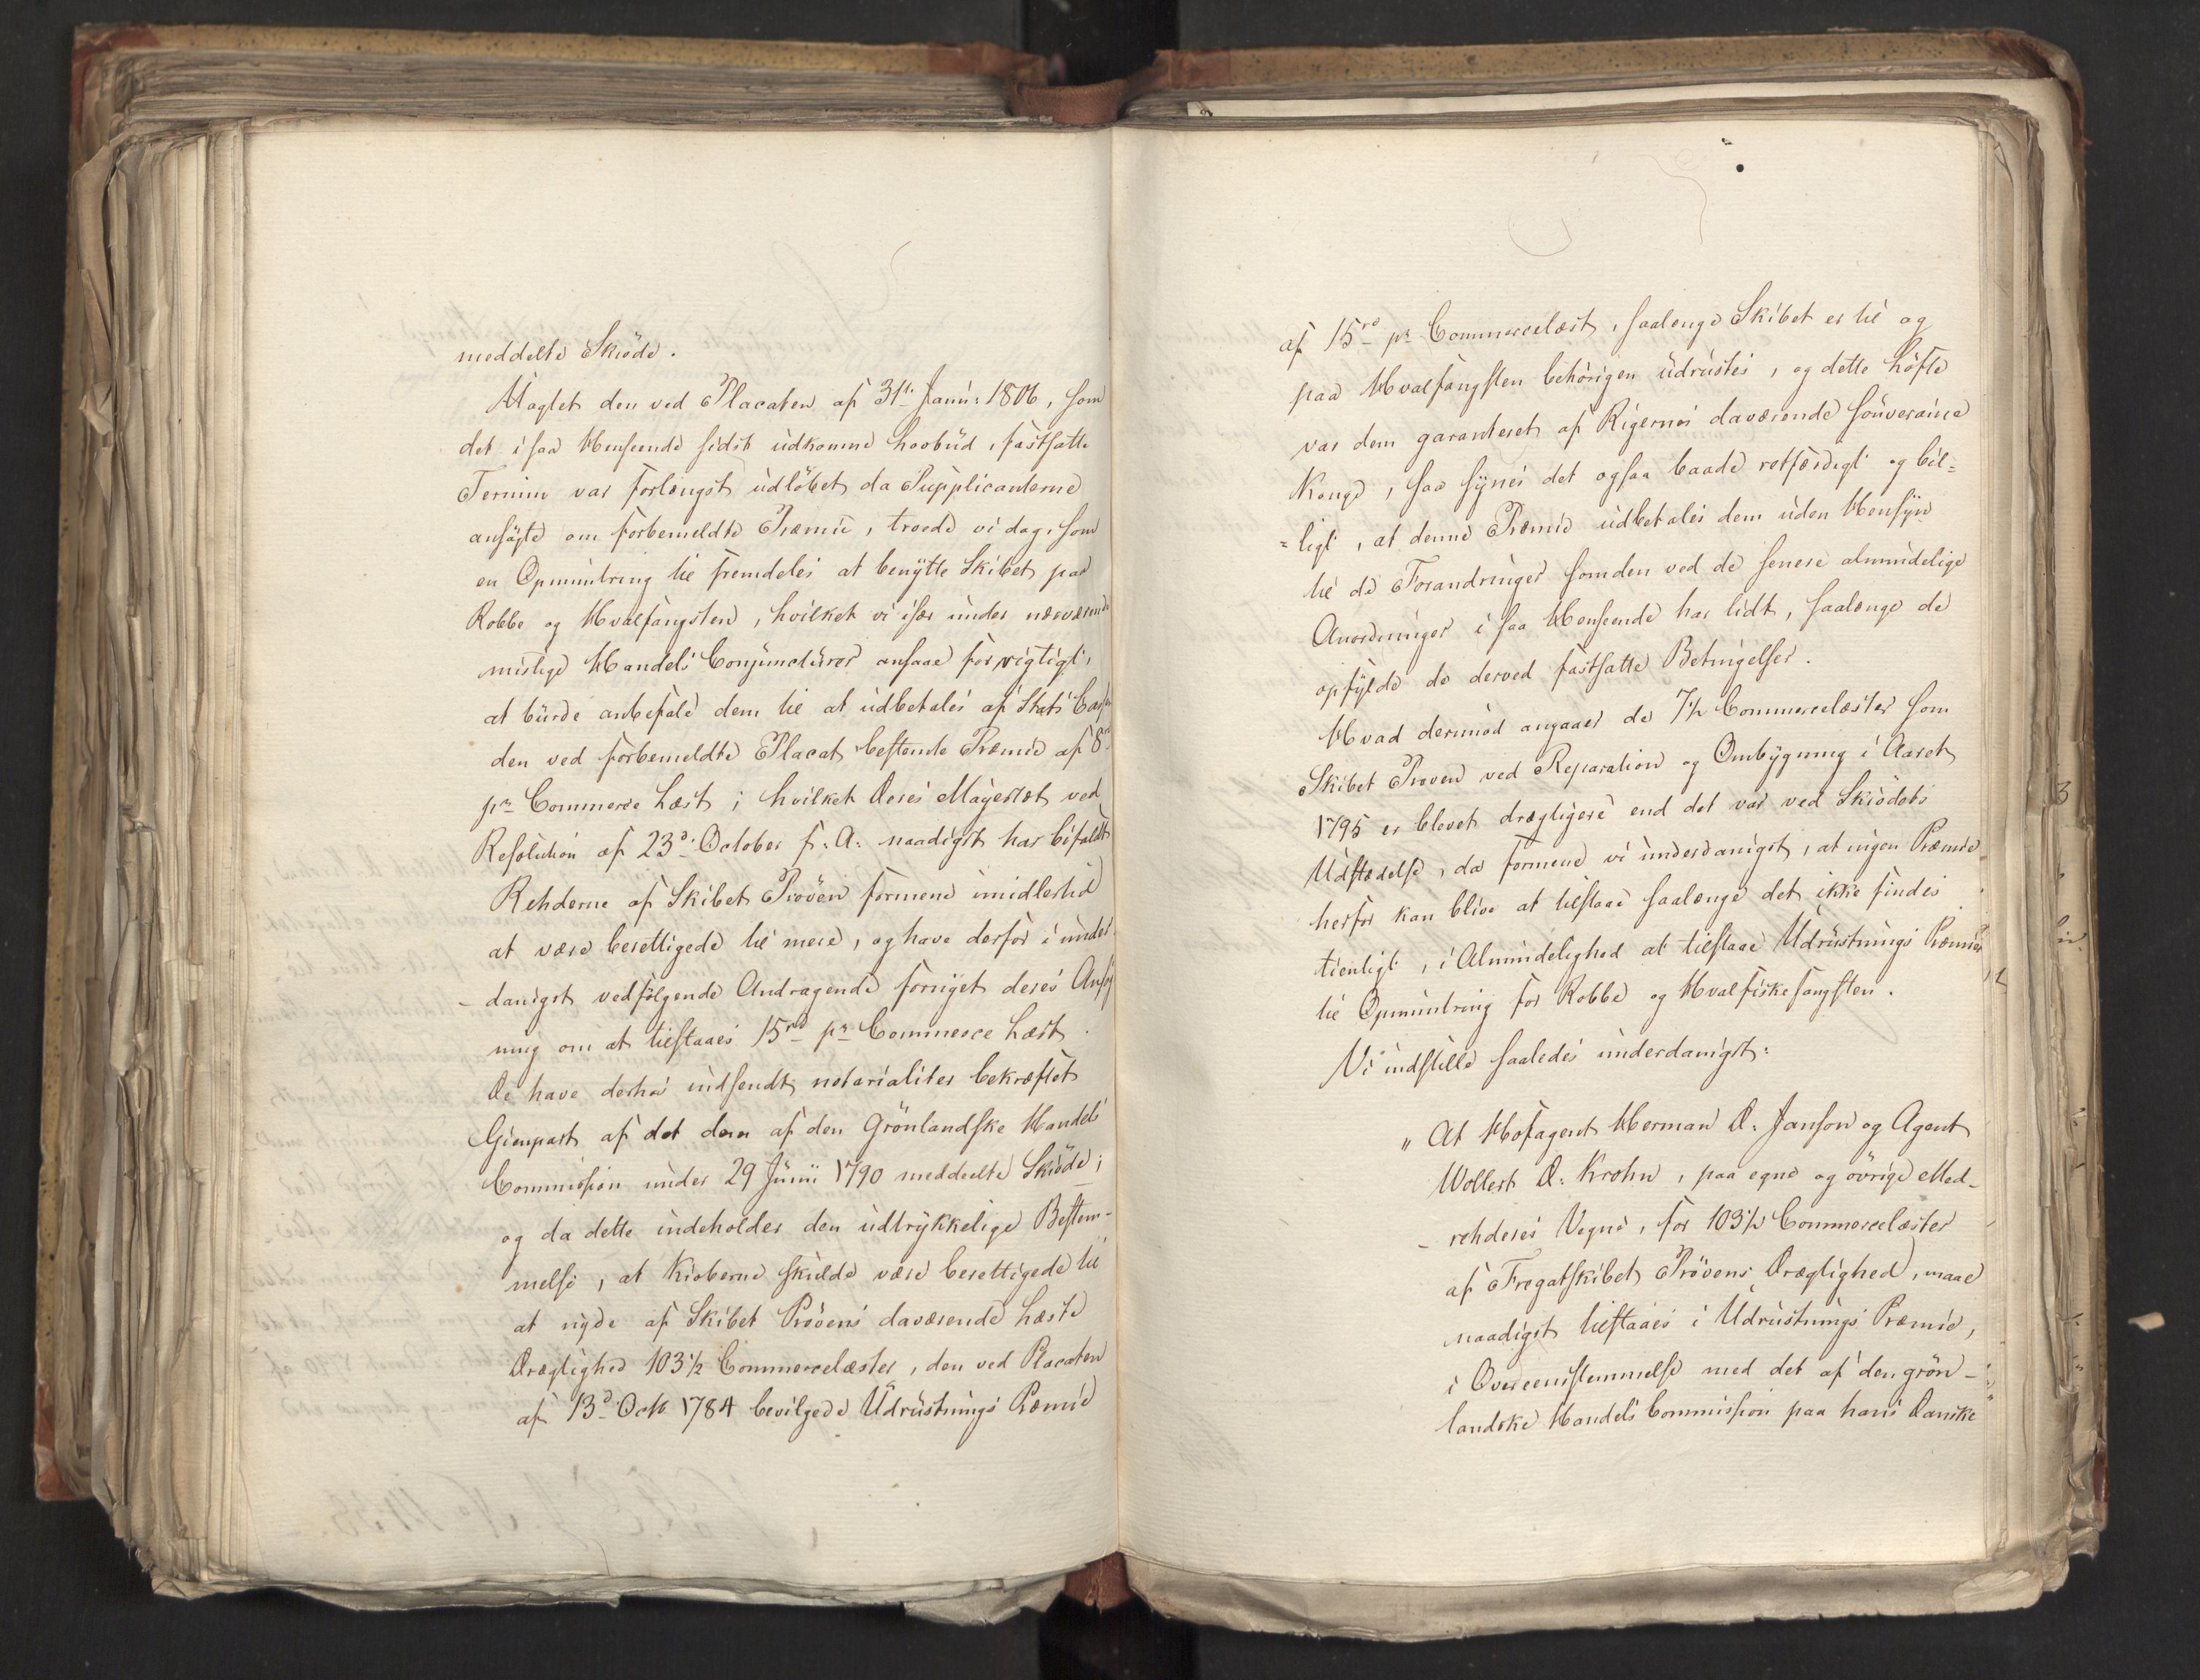 meddelte Skiöde.
Uagtet den ved Placaten af 31te Janu: 1806, som
det i saa Henseende sidst udkomne Lovbud, fastsatte
Termin var forlængst udlöbet da Supplicanterne
ansögte om forbemeldte Præmie, troede vi dog, som
en Opmuntring til fremdeles at benytte Skibet paa
Robbe og Hvalfangsten, hvilket vi især under nærværende
mislige Handels Conjuncturer ansaae for vigtigt,
at burde anbefale dem til at udbetales af Stats Cassen
den ved forbemeldte Placat bestemte Præmie af 8rd
pr Commerce Læst; hvilket Deres Majestæt ved
Resolution af 23d October f: A: naadigst har bifaldt
Rehderne af Skibet Pröven formene imidlertid
at være berettigede til mere, og have derfor i under
- danigst vedfölgende Andragende fornyet deres Ansög
ning om at tilstaaes 15rd pr Commerce Læst.
De have derhos indsendt notarialiter bekræftet
Gienpart af det dem af den Grönlandske Handels
Commission under 29 Junii 1790 meddeelte Skiöde;
og da dette indeholder den udtrykkelige Bestem-
melse, at Kiöberne skulde være berettigede til
at nyde af Skibet Prövens daværende Læste
Drægtighed 103½ Commercelæster, den ved Placaten
af 13d Octb 1784 bevilgede Udrustnings Præmie
af 15rd pr Commercelæst, saalenge Skibet er til og
paa Hvalfangsten behörigen udrustes, og dette Löfte
var dem garanteret af Rigernes daværende souveraine
Konge, saa synes det ogsaa baade retfærdigt og bil=
=ligt, at denne Præmie udbetales dem uden Hensyn
til de Forandringer somden ved de senere almindelige
Anordninger i saa Henseende har lidt, saalænge de
opfylde de derved fastsatte Betingelser.
Hvad derimod angaaer de 7½ Commercelæster som
Skibet Pröven ved Reparation og Ombygning i Aaret
1795 er blevet drægtigere end det var ved Skiödets
Udstædelse, da formene vi underdanigst, at ingen Præmie
herfor kan blive at tilstaae saalænge det ikke findes
tienligt, i Almindelighed at tilstaae Udrustnings Præmier
til Opmuntring for Robbe og Hvalfiskefangsten.
Vi indstille saaledes underdanigst:
„ At Hofagent Herman D: Janson og Agent
Wollert D: Krohn, paa egne og övrige Med-
- rehderes Vegne, for 103½ Commercelæster
af Fregatskibet Prövens Drægtighed, maae
naadigst tilstaaes i Udrustnings Præmie,
i Overeenstemmelse med det af den grön-
landske Handels Commission paa hans Danske